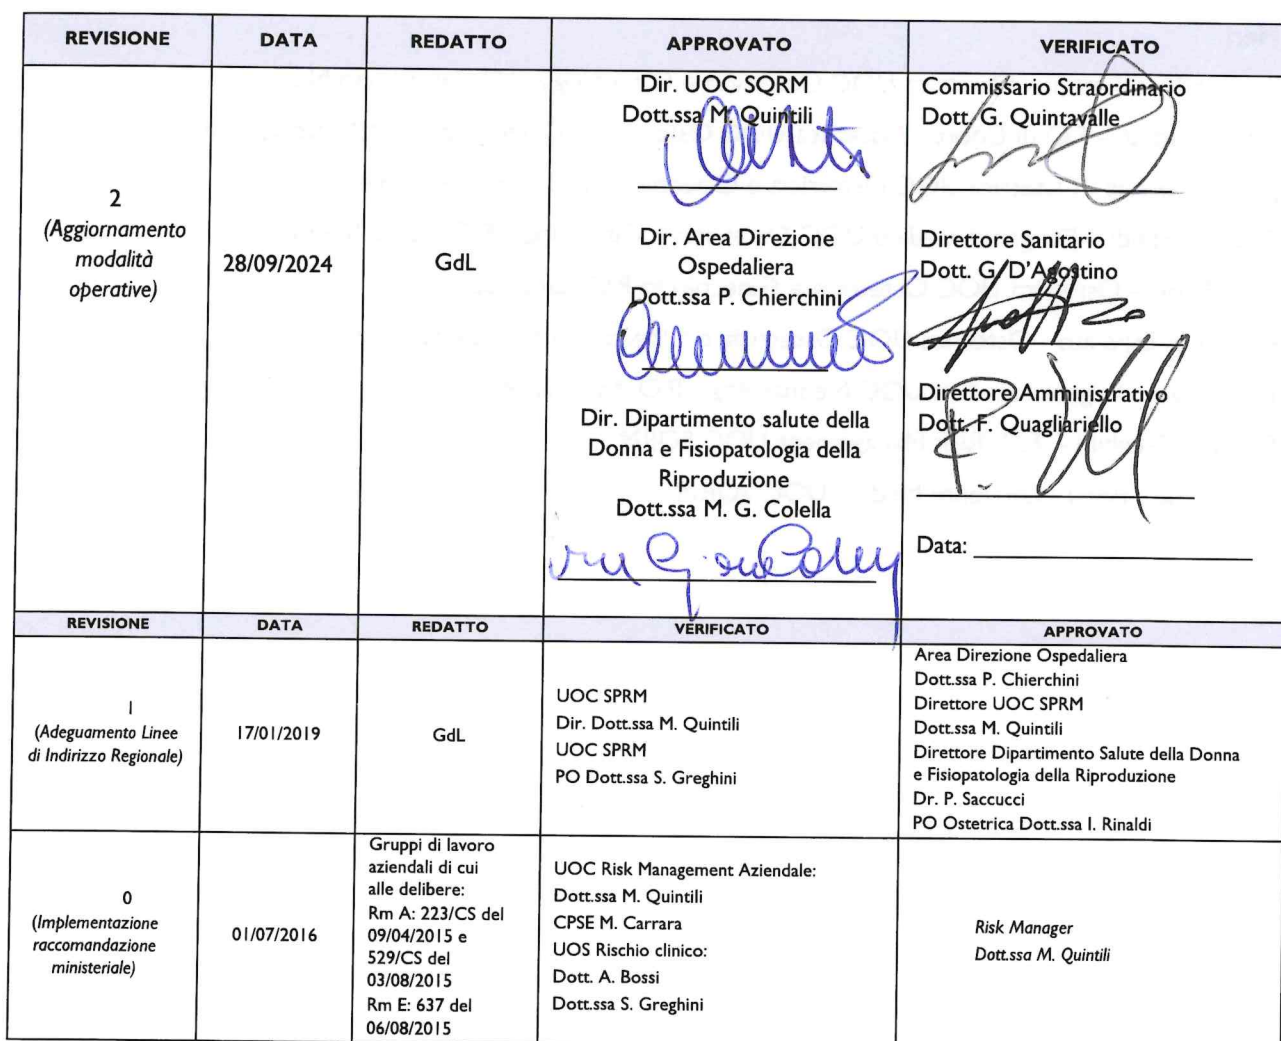 REVISIONE DATA REDATTO APPROVATO VERIFICATO
2
(Aggiornamento
modalità
operative)
28/09/2024
GdL
Dir. UOC SQRM
Dott.ssa M. Quintili
Dir. Area Direzione
Ospedaliera
Dott.ssa P. Chierchini
Dir. Dipartimento salute della
Donna e Fisiopatologia della
Riproduzione
Dott.ssa M. G. Colella
Commissario Straordinario
Dott. G. Quintavalle
Direttore Sanitario
Dott. G. D'Agostino
Direttore Amministrativo
Dott. F. Quagliariello
Data:
REVISIONE DATA REDATTO VERIFICATO APPROVATO
1
(Adeguamento Linee
di Indirizzo Regionale)
17/01/2019
GdL
UOC SPRM
Dir. Dott.ssa M. Quintili
UOC SPRM
PO Dott.ssa S. Greghini
Area Direzione Ospedaliera
Dott.ssa P. Chierchini
Direttore UOC SPRM
Dott.ssa M. Quintili
Direttore Dipartimento Salute della Donna
e Fisiopatologia della Riproduzione
Dr. P. Saccucci
PO Ostetrica Dott.ssa I. Rinaldi
0
(Implementazione
raccomandazione
ministeriale)
01/07/2016
Gruppi di lavoro
aziendali di cui
alle delibere:
Rm A: 223/CS del
09/04/2015 e
529/CS del
03/08/2015
Rm E: 637 del
06/08/2015
UOC Risk Management Aziendale:
Dott.ssa M. Quintili
CPSE M. Carrara
UOS Rischio clinico:
Dott. A. Bossi
Dott.ssa S. Greghini
Risk Manager
Dott.ssa M. Quintili